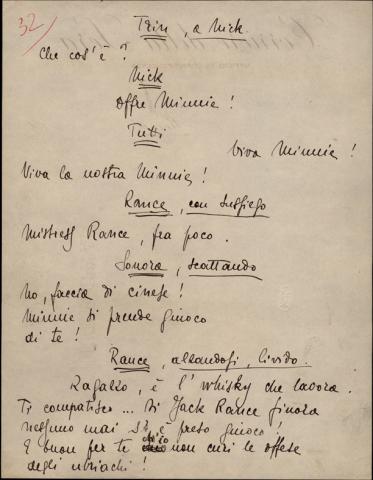 32
Trin, a Nick.
Che cos'è?
Nick
Offre Minnie!
Tutti
Viva Minnie!
Viva la nostra Minnie!
Rance, con sussiego
Mistress Rance, fra poco.
Sonora, scattando
No, faccia di cinese!
Minnie si prende giuoco
di te!
Rance, alzandosi, livido.
Ragazzo, è l'whisky che lavora.
Ti compatisco... Di Jack Rance finora
nessuno mai s'è preso giuoco!
E buon per te ch'io non curi le offese
degli ubriachi!